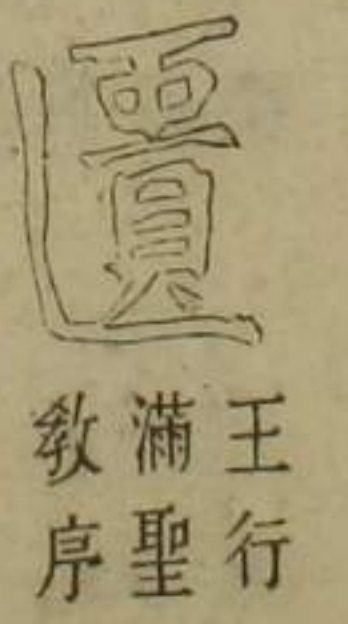 匱
王行
滿聖
教序